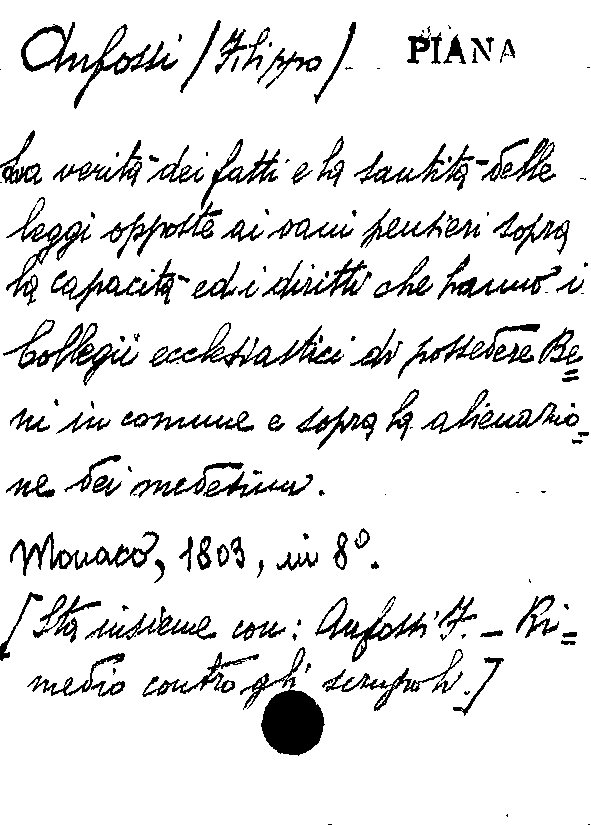 Anfossi (Filippo) PIANA
La verità dei fatti e la santità delle
leggi opposte ai vani pensieri sopra
la capacità ed i diritti che hanno i
Collegii ecclesiastici di possedere Be=
ni in comune e sopra la alienazio=
ne dei medesimi.
Monaco, 1803, in 8°.
[Sta insieme con: Anfossi F. – Ri=
medio contro gli scrupoli.]